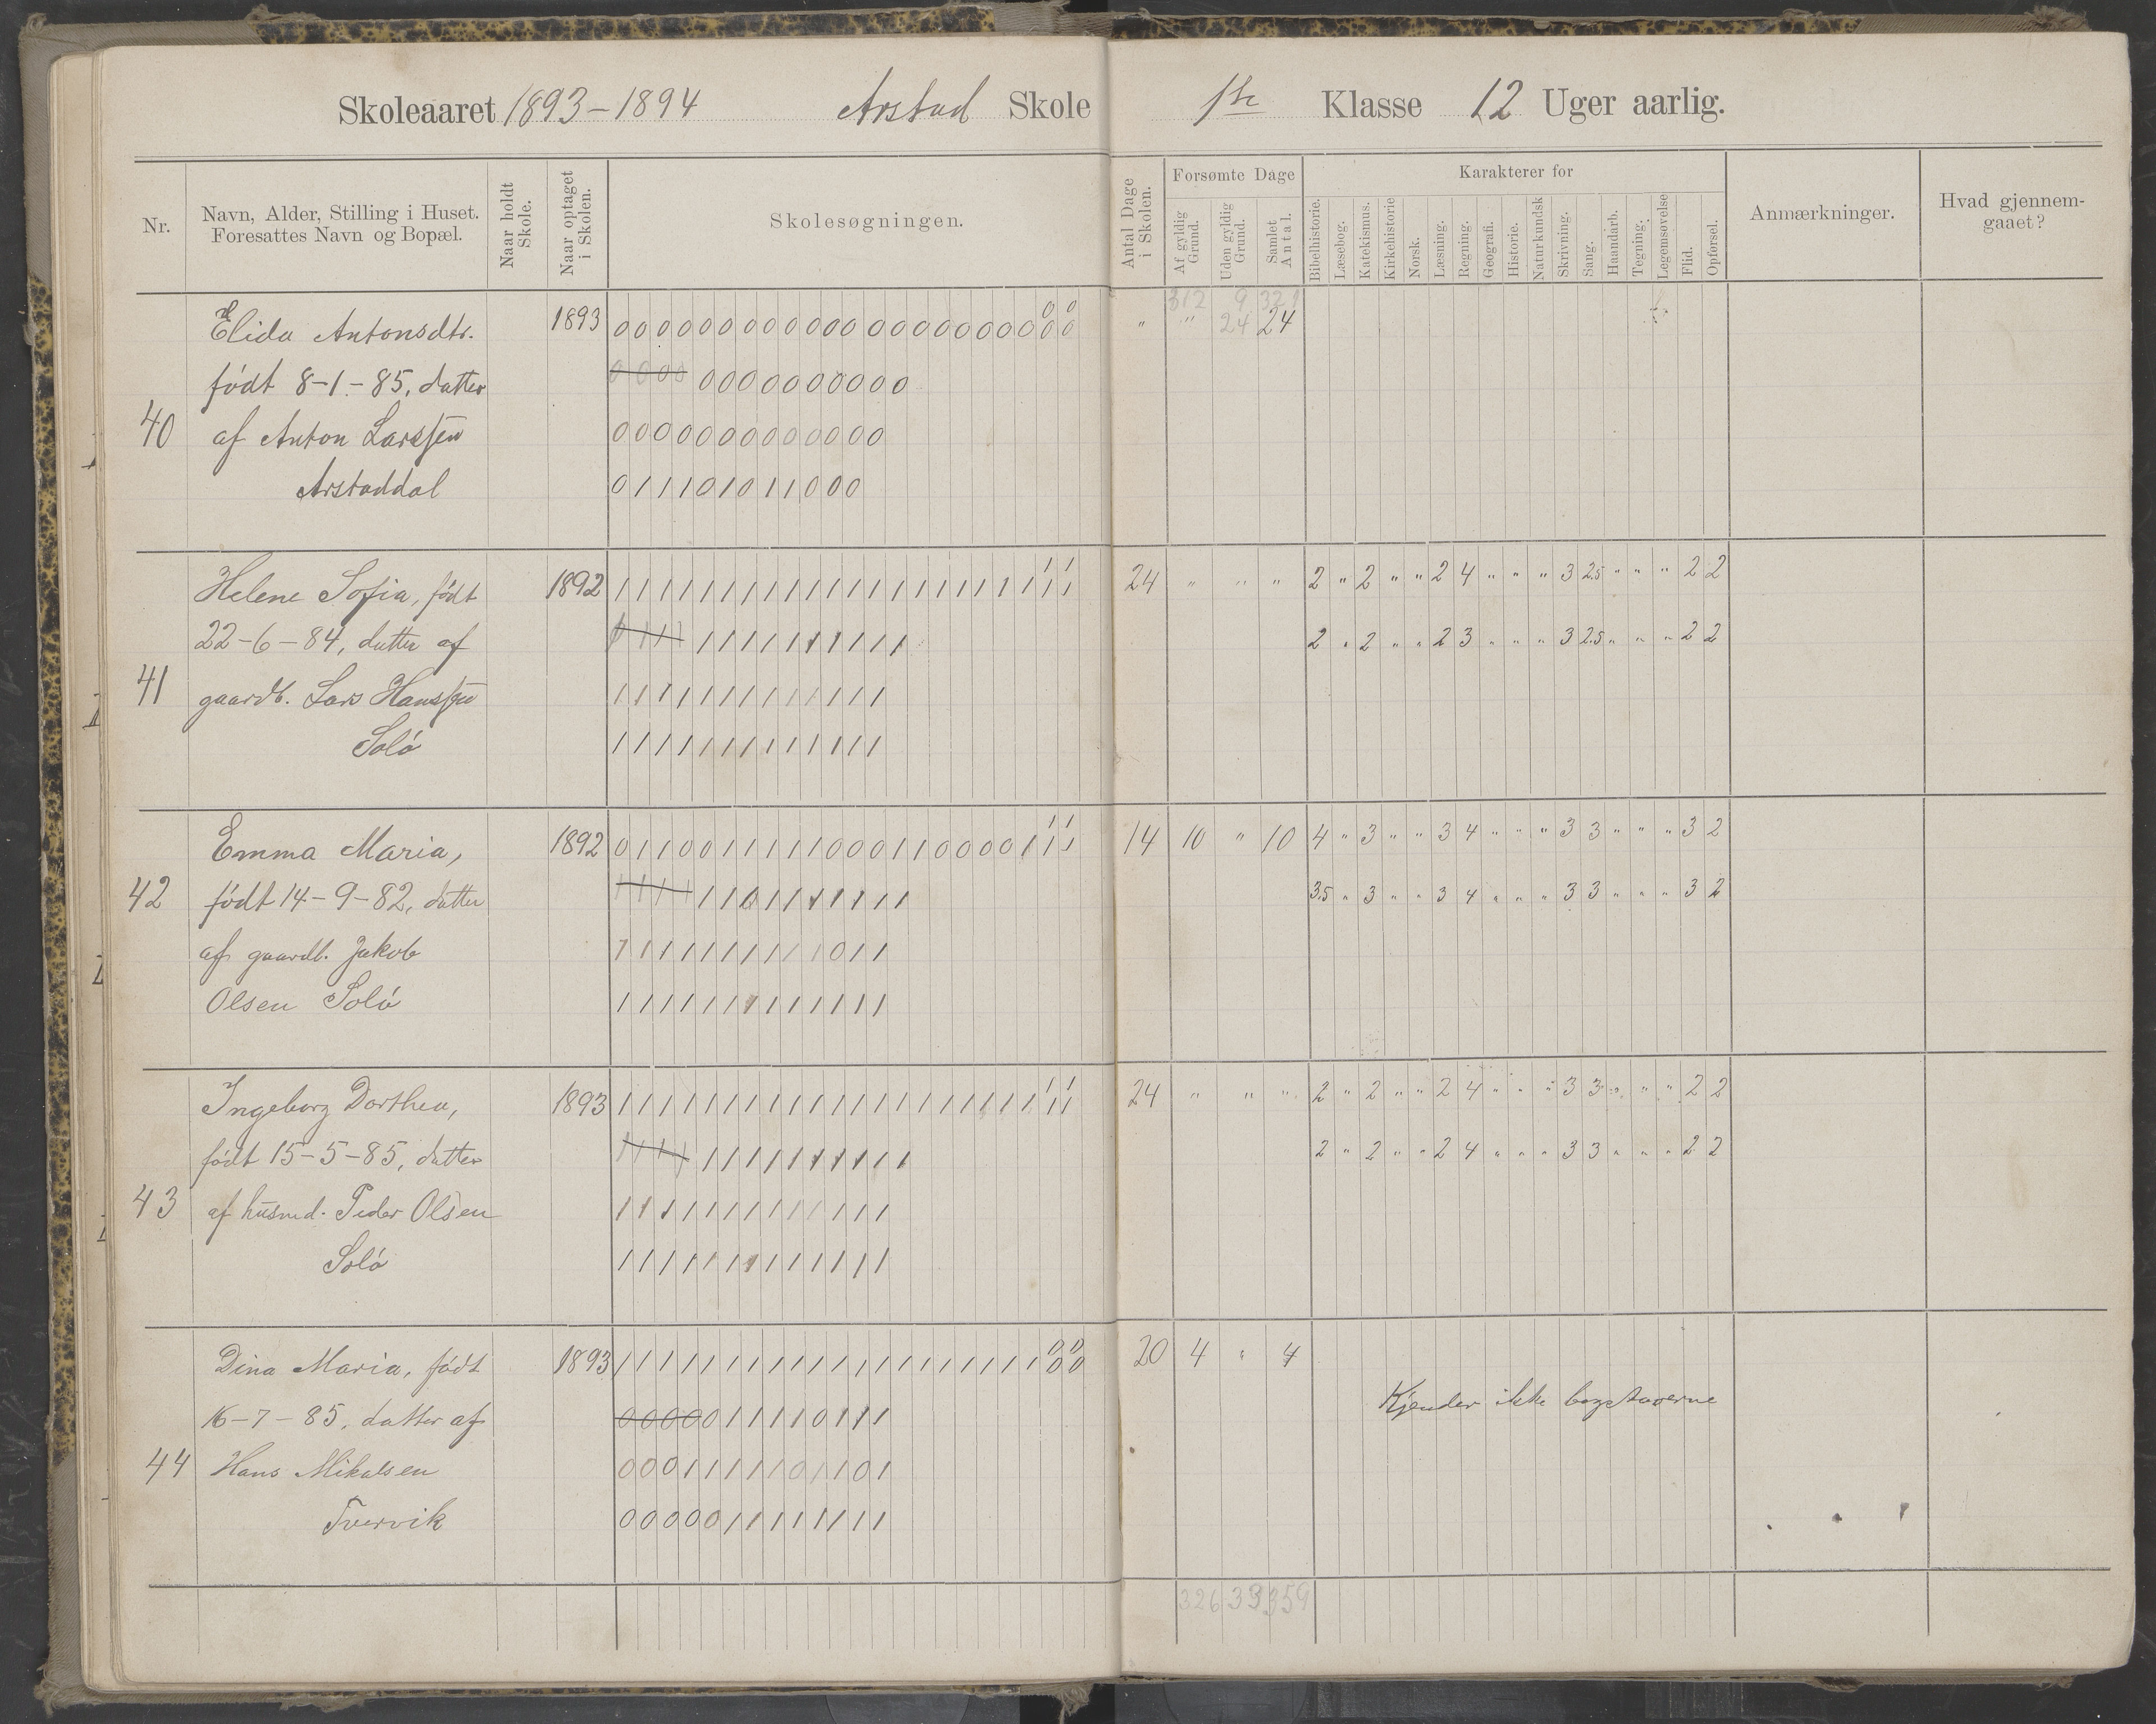 Skoleaaret 1893-1894 Arstad Skole 1ste Klasse 12 Uger aarlig.
Nr.
Navn, Alder, Stilling i Huset.
Foresattes Navn og Bopæl.
Naar holdt
Skole.
Naar optaget
i Skolen.
Skolesøgningen.
Antal Dage
i Skolen.
Forsømte Dage
Af gyldig
Grund.
Uden gyldig
Grund.
Samlet
Antal.
Karakterer for
Bibelhistorie.
Læsebog.
Katekismus.
Kirkehistorie
Norsk.
Læsning.
Regning.
Geografi.
Historie.
Naturkundsk
Skrivning.
Sang.
Haandarb.
Tegning.
Legemsøvelse
Flid.
Opførsel.
Anmærkninger.
Hvad gjennem-
gaaet?
312 9 321
40
Elida Antonsdtr. 1893 " " 24 24
født 8-1-85, datter
af Anton Larssen
Arstaddal
0 1 1 1 0 1 0 1 1 0 0 0
41
Helene Sofia, født 1892 24 " " " 2 " 2 " " 2 4 " " " 3 2.5 " " " 2 2
22-6-84, datter af 2 " 2 " " 2 3 " " " 3 2.5 " " " 2 2
gaardb. Lars Hanssen
Solö
42
Emma Maria, 1892 14 10 " 10 4 " 3 " " 3 4 " " " 3 3 " " " 3 2
født 14-9-82, datter 3.5 " 3 " " 3 4 " " " 3 3 " " " 3 2
af gaardb. Jakob
Olsen Solö
43
Ingeborg Dorthea, 1893 24 " " " 2 " 2 " " 2 4 " " " 3 3 " " " 2 2
født 15-5-85, datter 2 " 2 " " 2 4 " " " 3 3 " " " 2 2
af husmd. Peder Olsen
Solö
44
Dina Maria, født 1893 20 4 " 4
16-7-85, datter af Kjender ikke bogstaverne
Hans Mikalsen
Tvervik
326 33 359